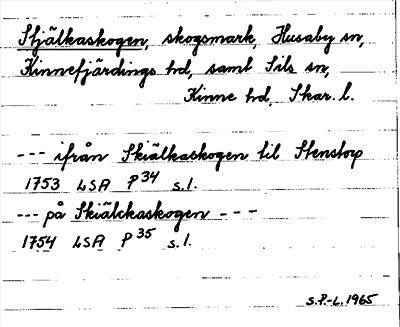 Stjälkaskogen, skogsmark, Husaby sn,
Kinnefjärdings hd, samt Sils sn,
Kinne hd, Skar. l.
--- ifrån Skiälkaskogen til Stenstorp
1753 LSA P34 s.1.
--- på Skiälckaskogen ---
1754 LSA P35 s.1.
S.P.-L. 1965